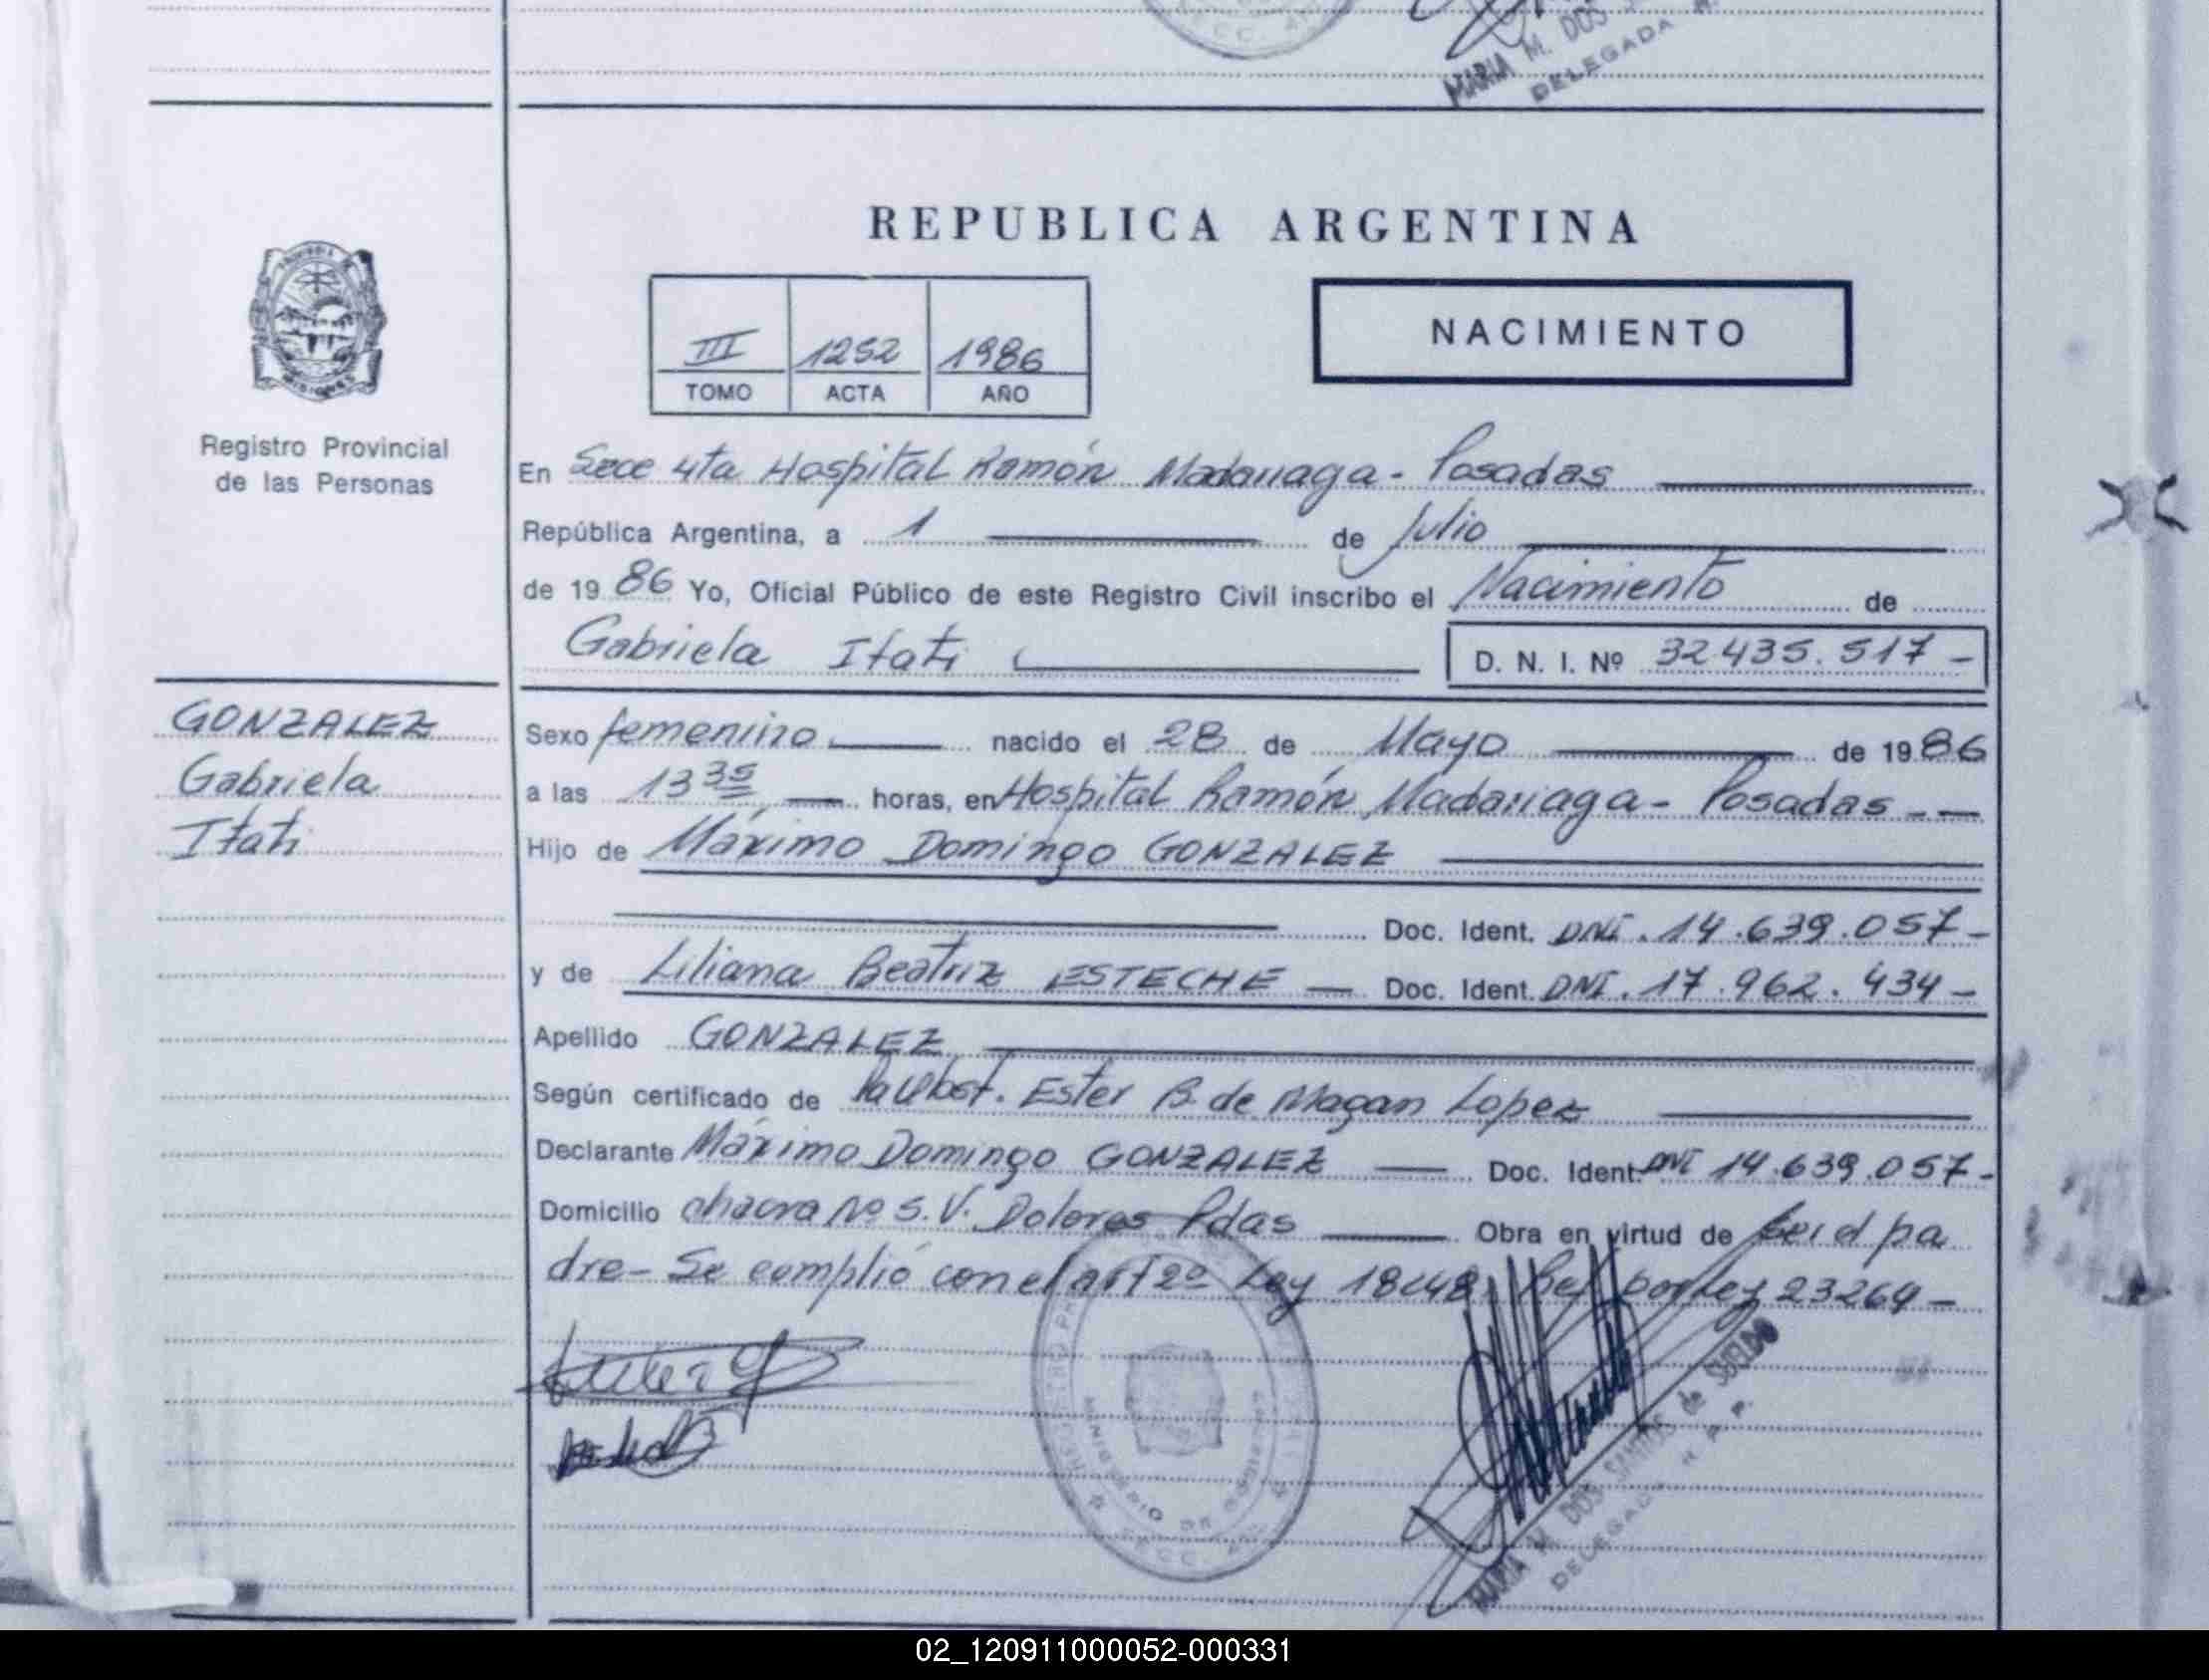 MARIA M. DOS
DELEGADA
REPUBLICA ARGENTINA
III 1252 1986
TOMO ACTA AÑO
NACIMIENTO
Registro Provincial
de las Personas
En Secc 4ta Hospital Ramón Madariaga - Posadas
República Argentina, a 1 de Julio
de 19 86 Yo, Oficial Público de este Registro Civil inscribo el Nacimiento de
Gabriela Itati D. N. I. Nº 32435.517-
GONZALEZ
Gabriela
Itati
Sexo femenino nacido el 28 de Mayo de 19 86
a las 13 35 horas, en Hospital Ramón Madariaga - Posadas
Hijo de Máximo Domingo GONZALEZ
Doc. Ident. DNI. 14.639.057-
y de Liliana Beatriz ESTECHE Doc. Ident. DNI. 17.962.434-
Apellido GONZALEZ
Según certificado de Ester B. de Magan Lopez
Declarante Máximo Domingo GONZALEZ Doc. Ident. DNI 14.639.057-
Domicilio chacra Nº S.V. Dolores Pdas Obra en virtud de ser el pa
dre- Se cumplió con el art 2º Ley 18248 Ref por Ley 23264-
MINISTERIO DE
MARIA M. DOS SANTOS de SUELDO
DELEGADA R. P. P.
02_120911000052-000331